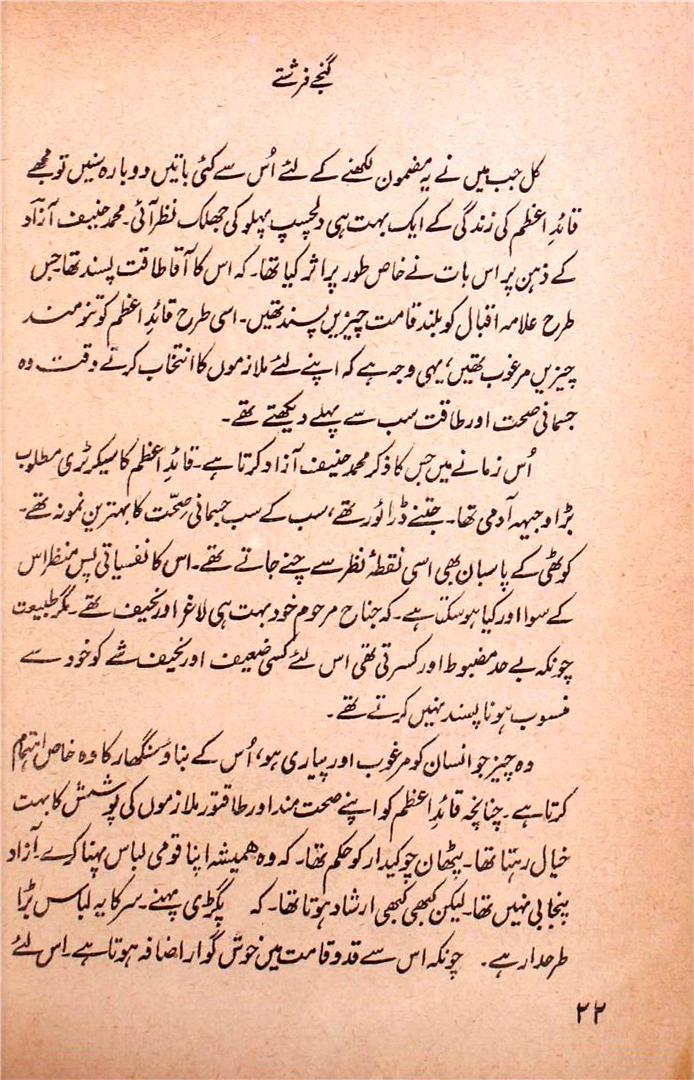 گنجے فرشتے
کل جب میں نے یہ مضمون لکھنے کے لئے اُس سے کئی باتیں دوبارہ سنیں تو مجھے
قائدِ اعظم کی زندگی کے ایک بہت ہی دلچسپ پہلو کی جھلک نظر آئی۔ محمد حنیف آزاد
کے ذہن پر اس بات نے خاص طور پر اثر کیا تھا۔ کہ اس کا آقا طاقت پسند تھا جس
طرح علامہ اقبال کو بلند قامت چیزیں پسند تھیں۔ اسی طرح قائدِ اعظم کو تنومند
چیزیں مرغوب تھیں، یہی وجہ ہے کہ اپنے لئے ملازموں کا انتخاب کرتے وقت وہ
جسمانی صحت اور طاقت سب سے پہلے دیکھتے تھے۔
اُس زمانے میں جس کا ذکر محمد حنیف آزاد کرتا ہے۔ قائدِ اعظم کا سیکرٹری مطلوب
بڑا وجیہہ آدمی تھا۔ جتنے ڈرائور تھے، سب کے سب جسمانی صحّت کا بہترین نمونہ تھے۔
کوٹھی کے پاسبان بھی اسی نقطۂ نظر سے چنے جاتے تھے۔ اس کا نفسیاتی پس منظر اس
کے سوا اور کیا ہو سکتا ہے۔ کہ جناح مرحوم خود بہت ہی لاغر اور نحیف تھے۔ مگر طبیعت
چونکہ بے حد مضبوط اور کسرتی تھی اس لئے کسی ضعیف اور نحیف شے کو خود سے
منسوب ہونا پسند نہیں کرتے تھے۔
وہ چیز جو انسان کو مرغوب اور پیاری ہو، اُس کے بناؤ سنگھار کا وہ خاص اہتمام
کرتا ہے۔ چنانچہ قائدِ اعظم کو اپنے صحت مند اور طاقتور ملازموں کی پوشش کا بہت
خیال رہتا تھا۔ پٹھان چوکیدار کو حکم تھا۔ کہ وہ ہمیشہ اپنا قومی لباس پہنا کرے۔ آزاد
پنجابی نہیں تھا۔ لیکن کبھی کبھی ارشاد ہوتا تھا۔ کہ پگڑی پہنے۔ سر کا یہ لباس بڑا
طرحدار ہے۔ چونکہ اس سے قد و قامت میں خوش گوار اضافہ ہوتا ہے۔ اس لئے
۲۲